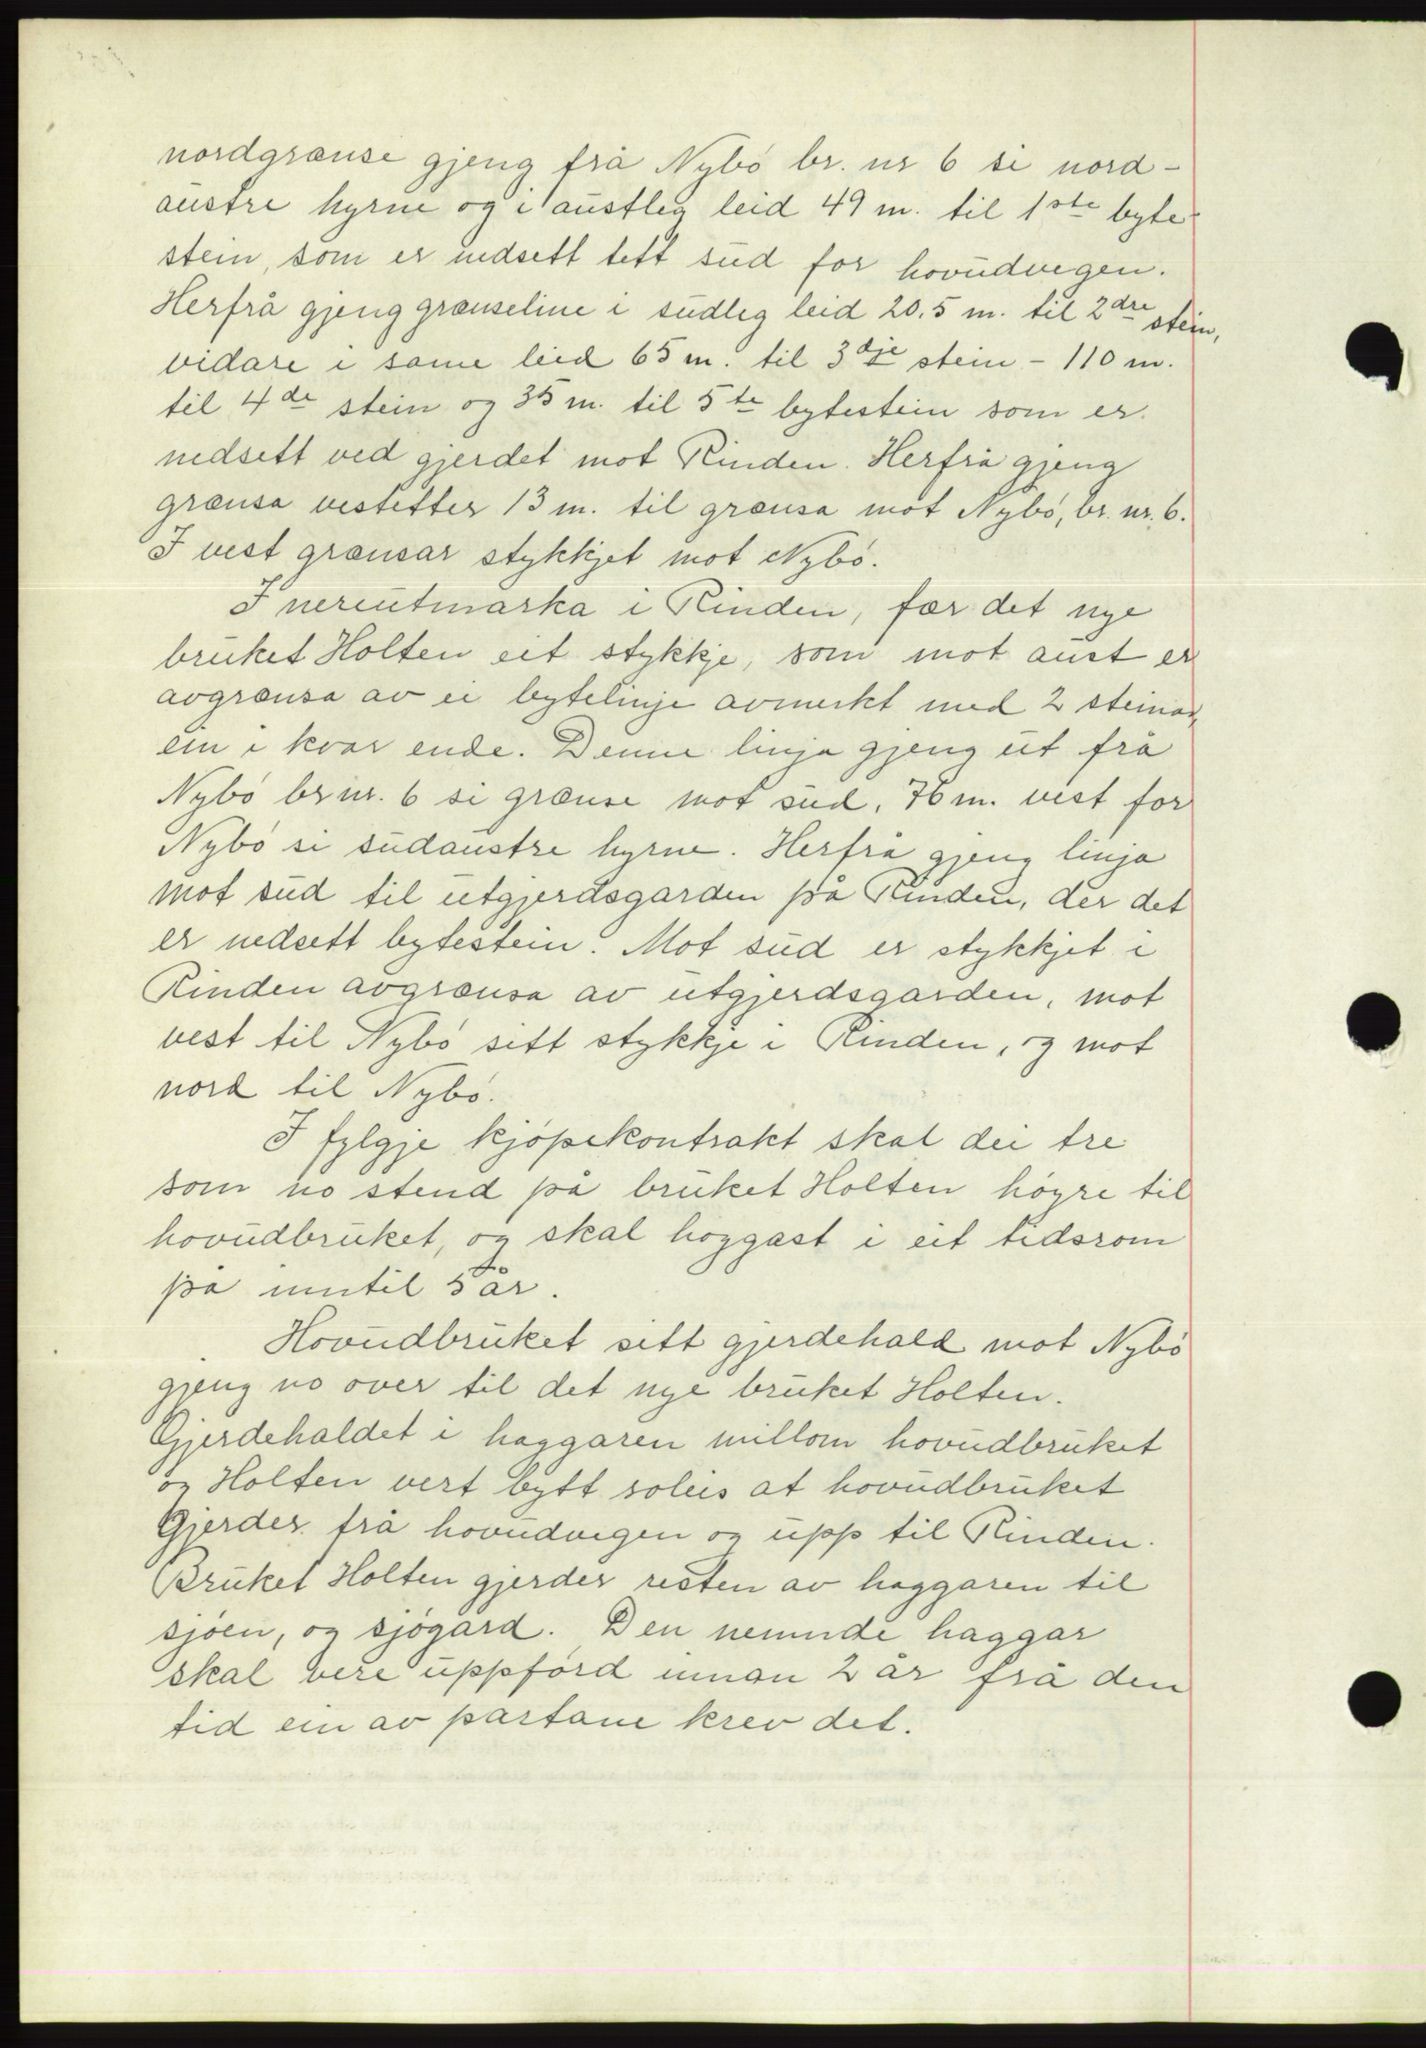 nordgrænse gjeng frå Nybö br. nr 6 si nord-
austre hyrne og i austleg leid 49 m. til 1ste byte-
stein, som er nedsett tett sud for hovudvegen.
Herfrå gjeng grænseline i sudleg leid 20.5 m. til 2dre stein,
vidare i same leid 65 m. til 3dje stein - 110 m.
til 4de stein og 35 m. til 5te bytestein som er
nedsett ved gjerdet mot Rinden. Herfrå gjeng
grænsa vestetter 13 m. til grænsa mot Nybö, br. nr. 6.
I vest grænsar stykkjet mot Nybö.
I nereutmarka i Rinden, fær det nye
bruket Holten eit stykkje, som mot aust er
avgrænsa av ei bytelinje avmerkt med 2 steinar,
ein i kvar ende. Denne linja gjeng ut frå
Nybö br nr. 6 si grænse mot sud, 76 m. vest for
Nybö si sudaustre hyrne. Herfrå gjeng linja
mot sud til utgjerdsgarden på Rinden, der det
er nedsett bytestein. Mot sud er stykkjet i
Rinden avgrænsa av utgjerdsgarden, mot
vest til Nybö sitt stykkje i Rinden, og mot
nord til Nybö.
I fylgje kjöpekontrakt skal dei tre
som no stend på bruket Holten höyre til
hovudbruket, og skal hoggast i eit tidsrom
på inntil 5 år.
Hovudbruket sitt gjerdehald mot Nybö
gjeng no over til det nye bruket Holten.
Gjerdehaldet i haggaren millom hovudbruket
og Holten vert bytt soleis at hovudbruket
Gjerder frå hovudvegen og upp til Rinden.
Bruket Holten gjerder resten av haggaren til
sjöen, og sjögard. Den nemnde haggar
skal vere uppförd innan 2 år frå den
tid ein av partane krev det.